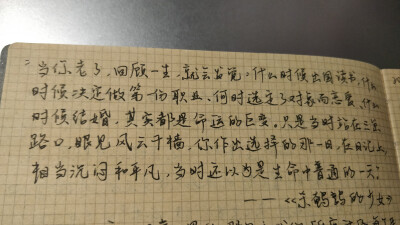 “当你老了,回顾一生,就会发觉:什么时候出国读书,什么
时候决定做第一份职业、何时选定了对象而恋爱、什么
时候结婚,其实都是命运的巨变。只是当时站在三岔
路口,眼见风云千樯,你作出选择的那一日,在日记上,
相当沉闷和平凡,当时还以为是生命中普通的一天。”
——《杀鹌鹑的少女》